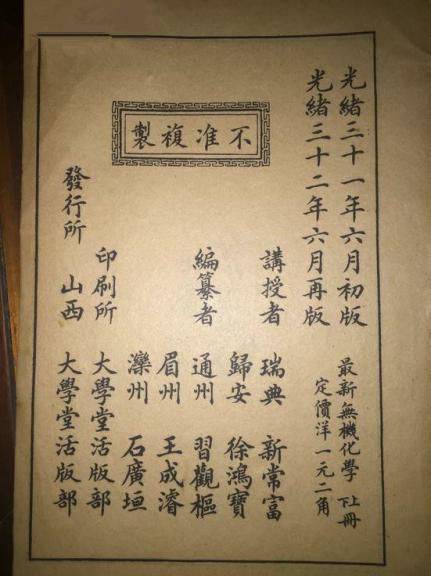 光緒三十一年六月初版
光緒三十二年六月再版
最新無機化學 上下冊
定價洋一元二角
講授者 瑞典 新常富
歸安 徐鴻寶
編纂者 通州 習觀樞
眉州 王成濬
灤州 石廣垣
印刷所 大學堂活版部
發行所 山西 大學堂活版部
不准複製